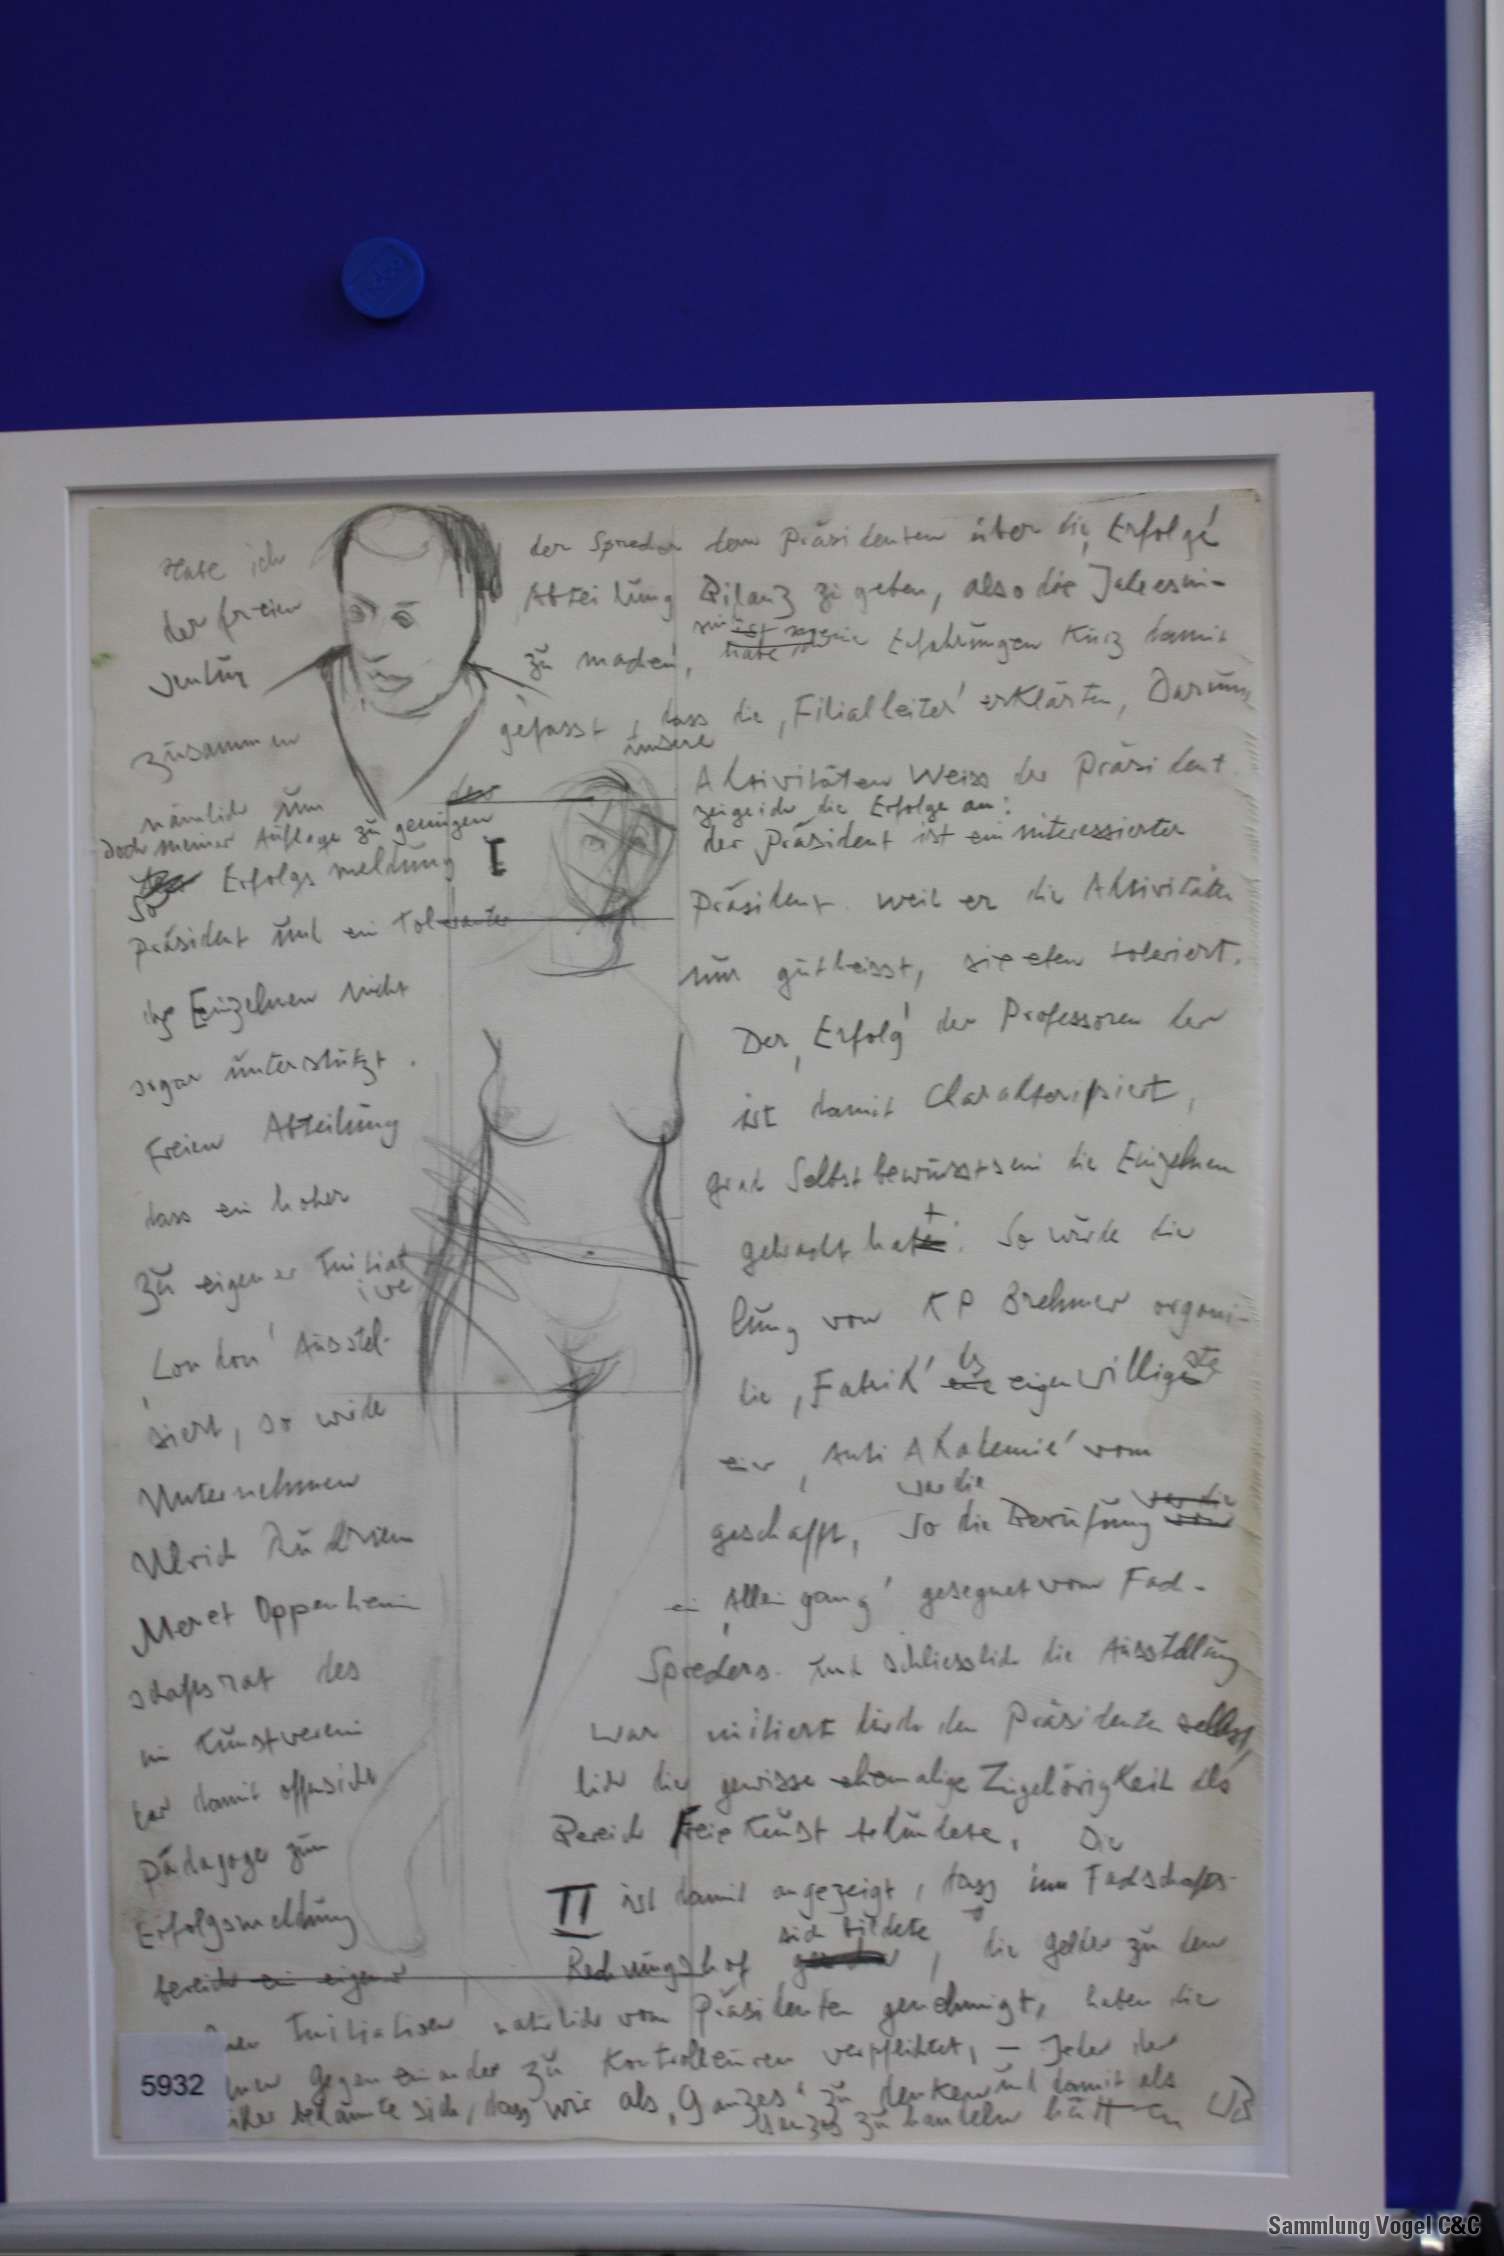 Habe ich der Sprecher dem Präsidenten über die ‚Erfolge'
der freien Abteilung Bilanz zu geben, also die Jahresin-
ventur zu machen, habe meine Erfahrungen kurz damit
zusammen gefasst, dass die ‚Filialleiter' erklärten, Darum
nämlich um unsere Aktivitäten Weiss der Präsident.
Doch meiner Auflage zu genügen zeige ich die Erfolge an:
der
So Erfolgsmeldung I der Präsident ist ein interessierter
Präsident und ein toleranter Präsident. weil er die Aktivitäten
der Einzelnen nicht nur gutheisst, sie eben toleriert.
sogar unterstützt. Der ‚Erfolg' der Professoren der
Freien Abteilung ist damit Charakterisiert,
dass ein hoher grad Selbstbewusstsein die Einzelnen
zu eigener Initiative gebracht hat. So wurde die
‚London' Ausstel-lung von KP Brehmer organi-
siert, so wurde die ‚Fabrik' das eigenwilligste
Unternehmen ein ‚Anti Akademie' vom
war die
Ulrich Rückriem geschafft, So die Berufung
Meret Oppenheim ein ‚Alleingang' gesegnet vom Fach-
schaftsrat des Sprechers. und schliesslich die Ausstellung
im Kunstverein war initiiert durch den Präsidenten selbst,
der damit offensicht lich die gewisse ehemalige Zugehörigkeit als
Pädagoge zum Bereich Freie Kunst bekundete. Die
Erfolgsmeldung II ist damit angezeigt, dass im Fachschafts-
bereich ein eigener Rechnungshof sich bildete, die Gelder zu den
Initiativen natürlich vom Präsidenten genehmigt, haben die
gegen einander zu Kontrolleuren verpflichtet, – Jeder der
bekannte sich, dass wir als ‚Ganzes' zu denken und damit als
Ganzes zu handeln hätten
5932
Sammlung Vogel C&C